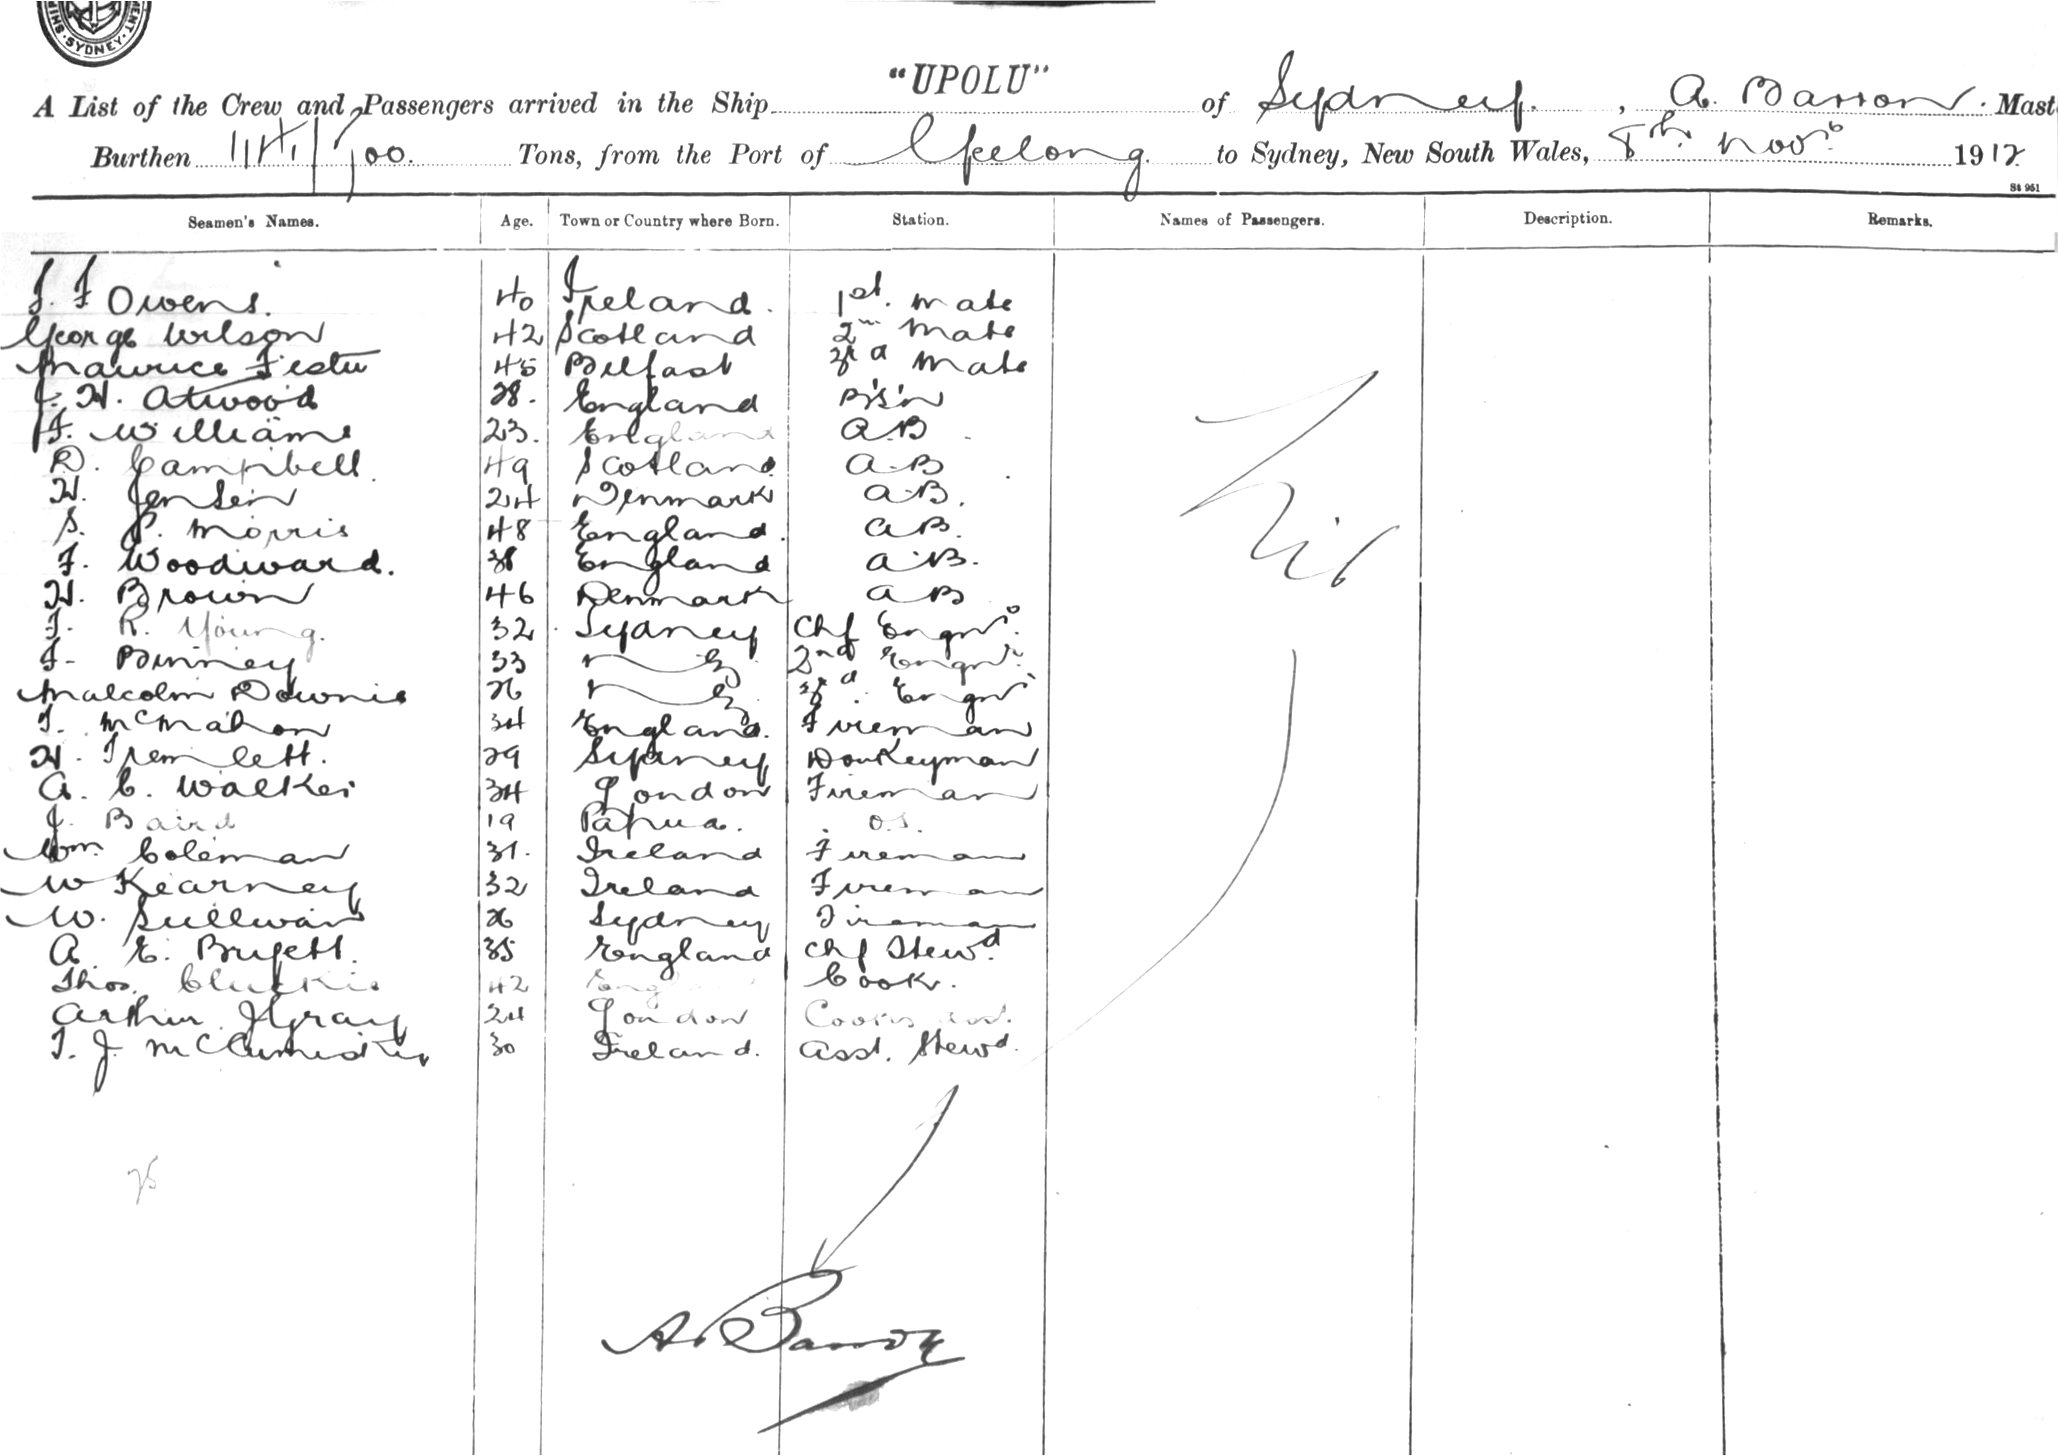 SYDNEY
"UPOLU"
A List of the Crew and Passengers arrived in the Ship of Sydney, A. Barron. Mast
Burthen 1141/700. Tons, from the Port of Geelong to Sydney, New South Wales, 8th Novr 1912
S4 951
Seamen's Names. Age. Town or Country where Born. Station. Names of Passengers. Description. Remarks.
Owens. 40 Ireland. 1st. mate
George Wilson 42 Scotland 2nd Mate
Maurice 45 Belfast 3rd Mate
J. H. Atwood 28. England B's'n
F. Williams 23. England A.B
D. Campbell 49 Scotland A.B
H. Jensen 24 Denmark A.B.
S. P. Morris 48 England. A.B.
F. Woodward. 38 England A.B.
H. Brown 46 Denmark A B
R. Young. 32 Sydney Chf Engnr.
Binney 33 2nd Engnr.
Malcolm Downie 26 3rd Engnr
T. McMahon 34 England. Fireman
H. Tremlett. 29 Sydney Donkeyman
A. C. Walker 34 London Fireman
J. Baird 19 Papua. O.S.
Wm. Coleman 31. Ireland Fireman
W Kearney 32 Ireland Fireman
W. Sullivan 26 Sydney Fireman
A. E. 35 England Chf Stewd.
Thos. 42 Cook.
Arthur Gray 24 London Cooks asst.
T. J. 30 Ireland. Asst. Stewd.
Nil
A. Barron